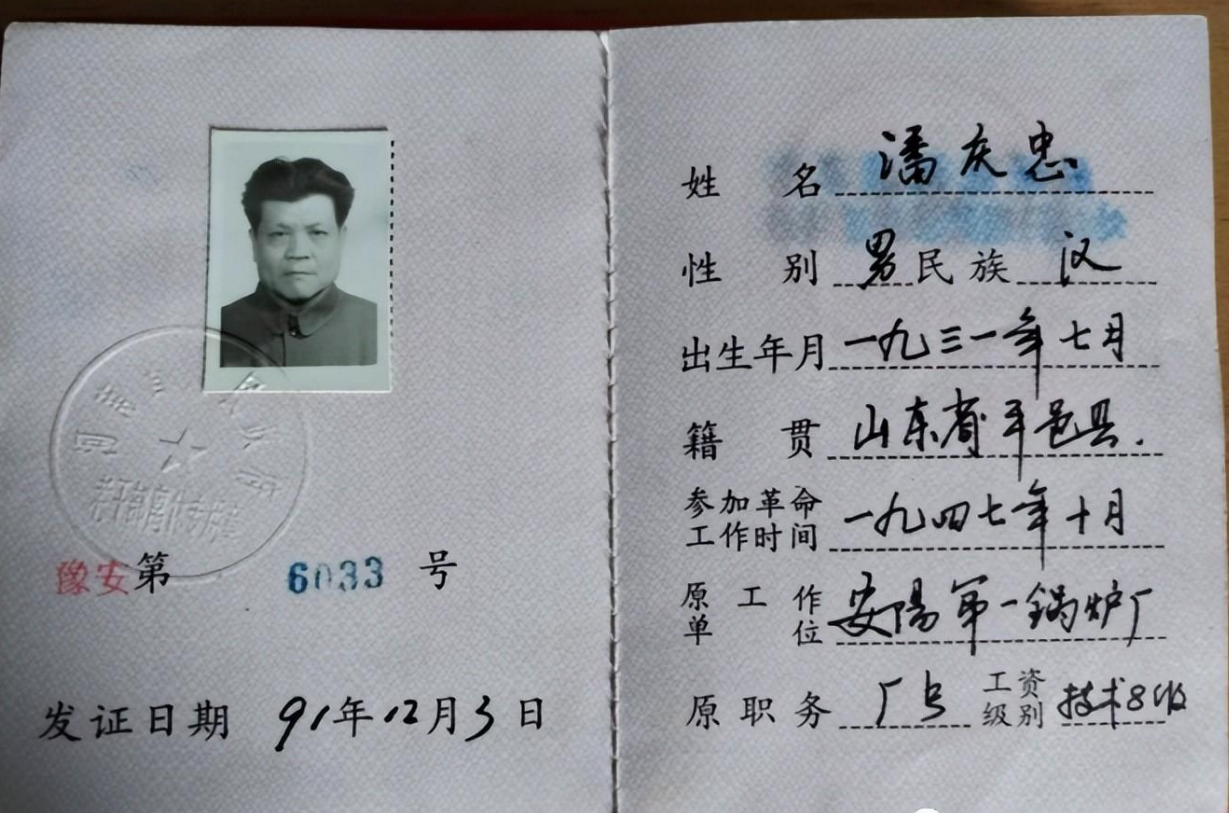 豫安第 6033 号
发证日期 91年12月3日
姓名 潘庆忠
性别 男 民族 汉
出生年月 一九三一年七月
籍贯 山东省平邑县.
参加革命工作时间 一九四七年十月
原工作单位 安陽第一锅炉厂
原职务 厂长 工资级别 技术8级